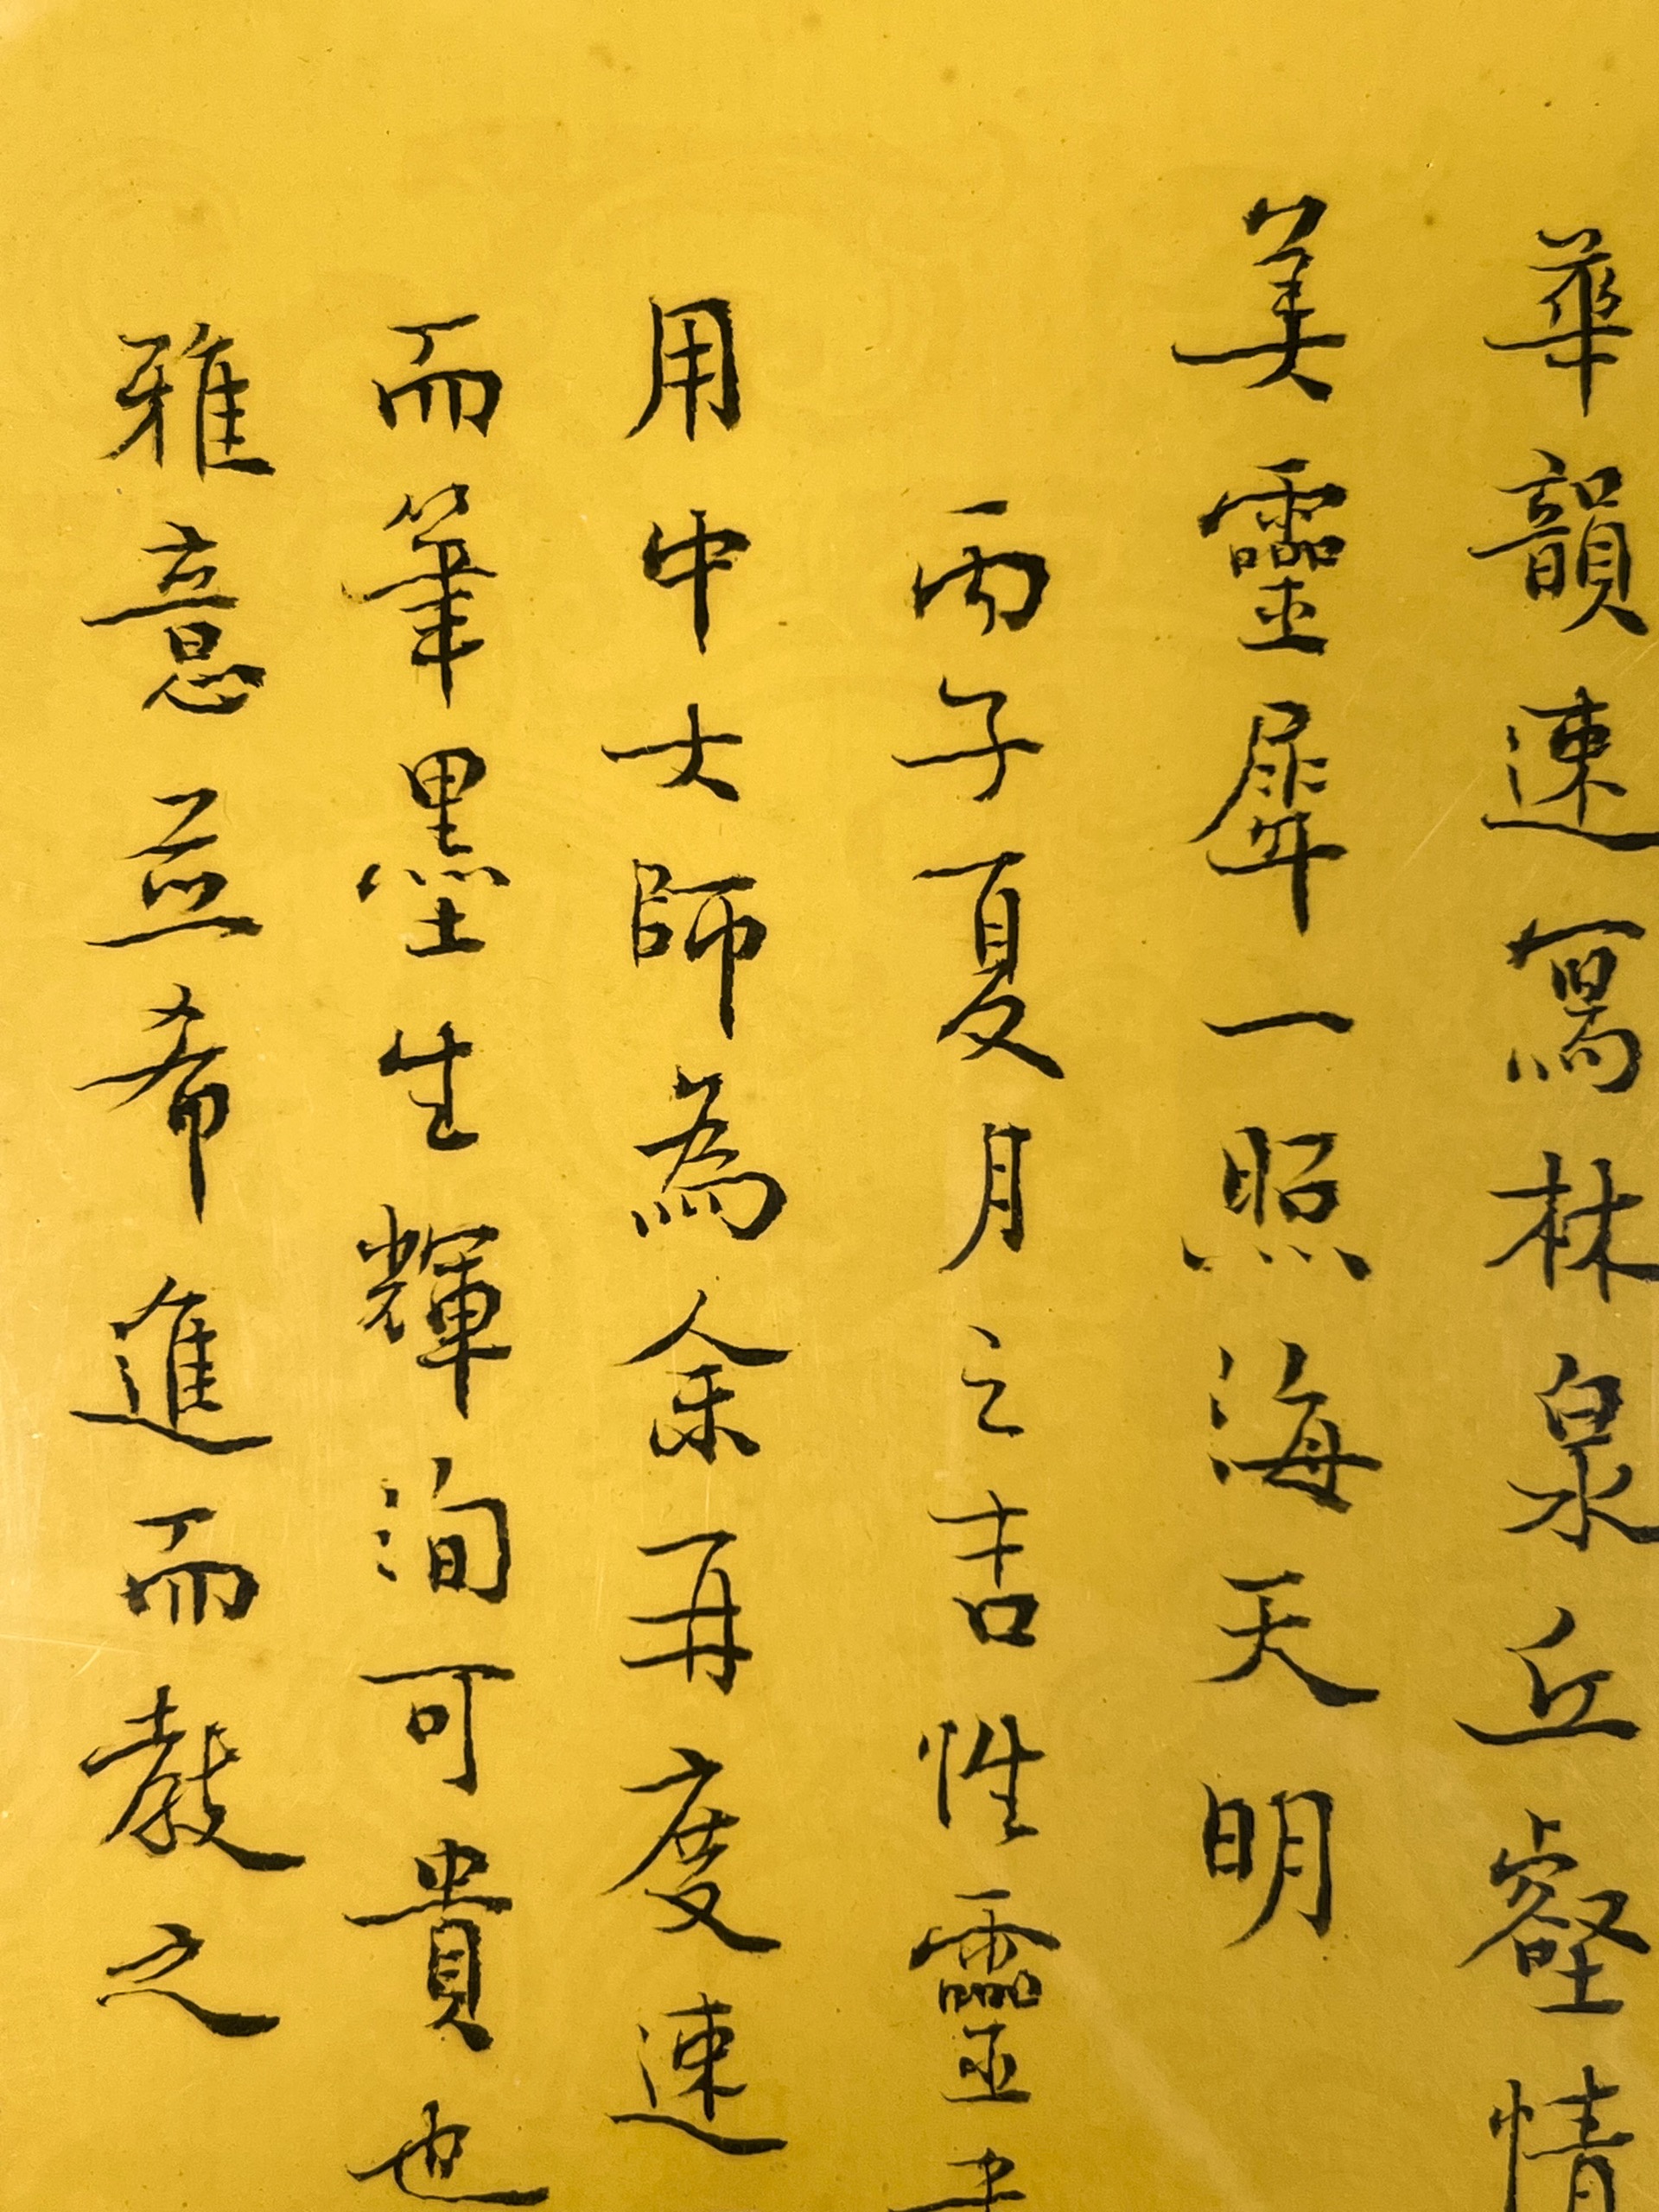 華韻速寫林泉丘壑情
美靈犀一照海天明
丙子夏月之吉性靈
用中大師為余再度速
而筆墨生輝洵可貴也
雅意並希進而教之